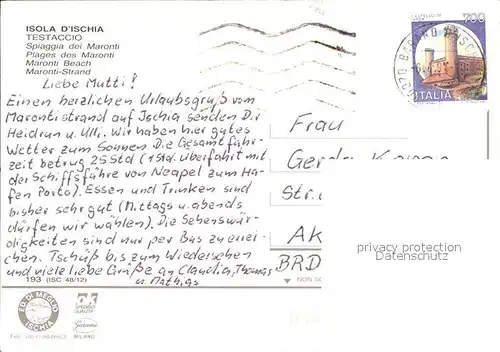 ISOLA D'ISCHIA
TESTACCIO
Spiaggia dei Maronti
Plages des Maronti
Maronti Beach
Maronti-Strand
Liebe Mutti!
Einen herzlichen Urlaubsgruß vom
Marontistrand auf Ischia senden Dir
Heidrun u. Ulli. Wir haben hier gutes
Wetter zum Sonnen. Die Gesamtfahr-
zeit betrug 25 Std (1 Std. Überfahrt mit
der Schiffsfähre von Neapel zum Ha-
fen Porto). Essen und Trinken sind
bisher sehr gut (Mittags u. abends
dürfen wir wählen). Die Sehenswür-
digkeiten sind nur per Bus zu errei-
chen. Tschüß bis zum Wiedersehen
und viele liebe Grüße an Claudia, Thomas
u. Mathias
193 (ISC 48/12)
ED. DI MEGLIO
ISCHIA
Garami
MILANO
700
ITALIA
Frau
Gerda
Str.
AK
BRD
privacy protection
Datenschutz